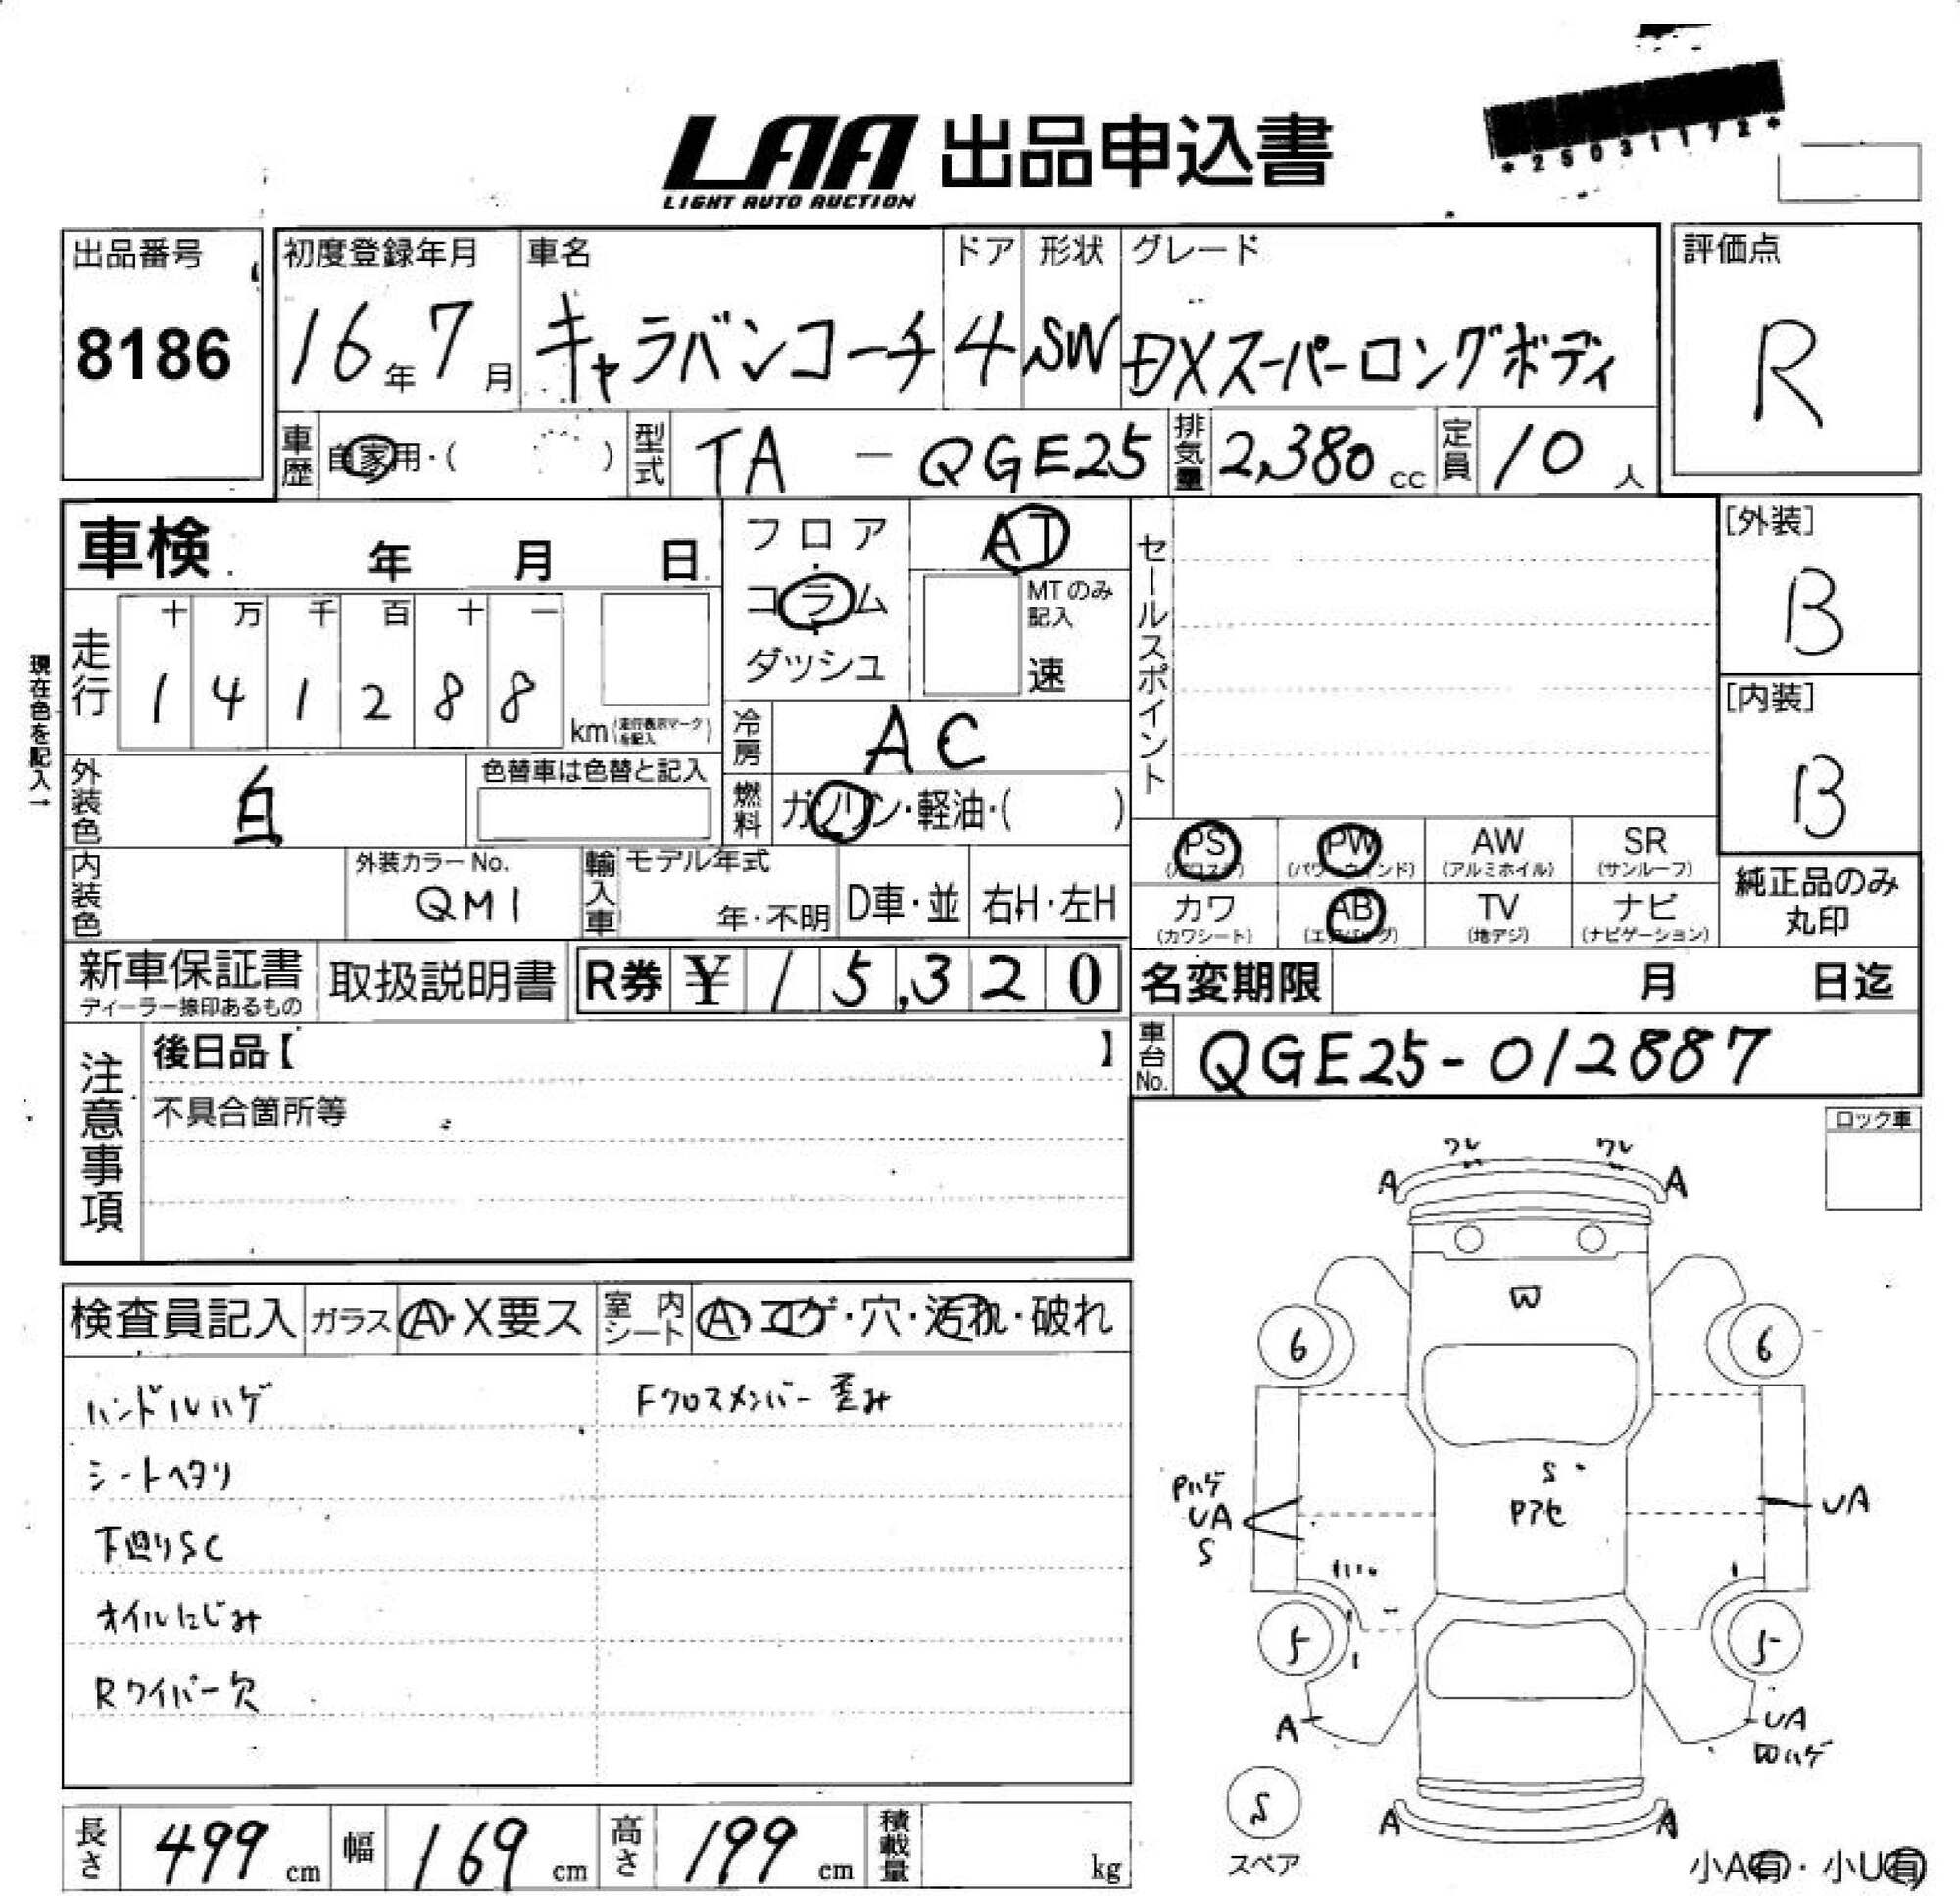 LAA 出品申込書
LIGHT AUTO AUCTION
*25031172*
出品番号
8186
初度登録年月
16年7月
車名
キャラバンコーチ
ドア
4
形状
SW
グレード
DXスーパーロングボディ
評価点
R
車歴
自家用・( )
型式
TA - QGE25
排気量
2,380 cc
定員
10 人
車検 年 月 日
フロア
コラム
ダッシュ
AT
MTのみ記入
速
セールスポイント
[外装]
B
[内装]
B
現在色を記入→
走行
十 万 千 百 十 一
1 4 1 2 8 8
km (走行表示マークを記入)
冷房
AC
外装色
白
色替車は色替と記入
燃料
ガソリン・軽油・( )
PS (パワステ)
PW (パワーウィンド)
AW (アルミホイル)
SR (サンルーフ)
カワ (カワシート)
AB (エアバッグ)
TV (地デジ)
ナビ (ナビゲーション)
純正品のみ丸印
内装色
外装カラーNo.
QM1
輸入車
モデル年式
年・不明
D車・並
右H・左H
新車保証書
ディーラー捺印あるもの
取扱説明書
R券 ¥ 15,320
名変期限 月 日迄
車台No.
QGE25-012887
注意事項
後日品【 】
不具合箇所等
ロック車
検査員記入
ガラス
A・X要ス
室内シート
A・コゲ・穴・汚れ・破れ
ハンドルハゲ
Fクロスメンバー歪み
シートヘタリ
下廻りSC
オイルにじみ
Rワイパー欠
ワレ ワレ
A A
W
6 6
S
Pアセ
Pハゲ
UA
S
UA
5 5
A
UA
A A
S
スペア
小A有・小U有
長さ 499 cm
幅 169 cm
高さ 199 cm
積載量 kg